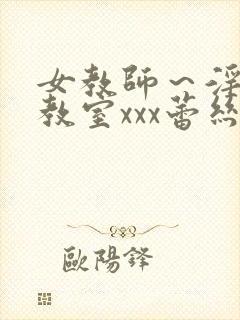 女教师~淫
教室xxx蕾丝
歐陽鋒